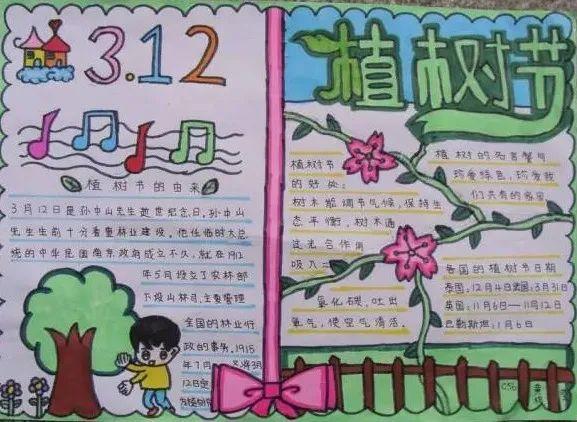 3.12
植树节的由来
3月12日是孙中山先生逝世纪念日,孙中山
先生生前十分看重林业建设。他任临时大总
统的中华民国南京政府成立不久,就在1912
年5月设立了农林部
下设山林司,主管管理
全国的林业行
政的事务,1915
年7月
将3月
12日定
为植树节
植树节
植树节
的好处:
树木能调节气候,保持生
态平衡,树木通
过光合作用
吸入二
氧化碳,吐出
氧气,使空气清洁。
植树的名言警句
珍爱绿色,珍爱我
们共有的家园
各国的植树节日期
泰国:12月4日 美国:3月31日
英国:11月6日—11月12日
巴勒斯坦:1月6日